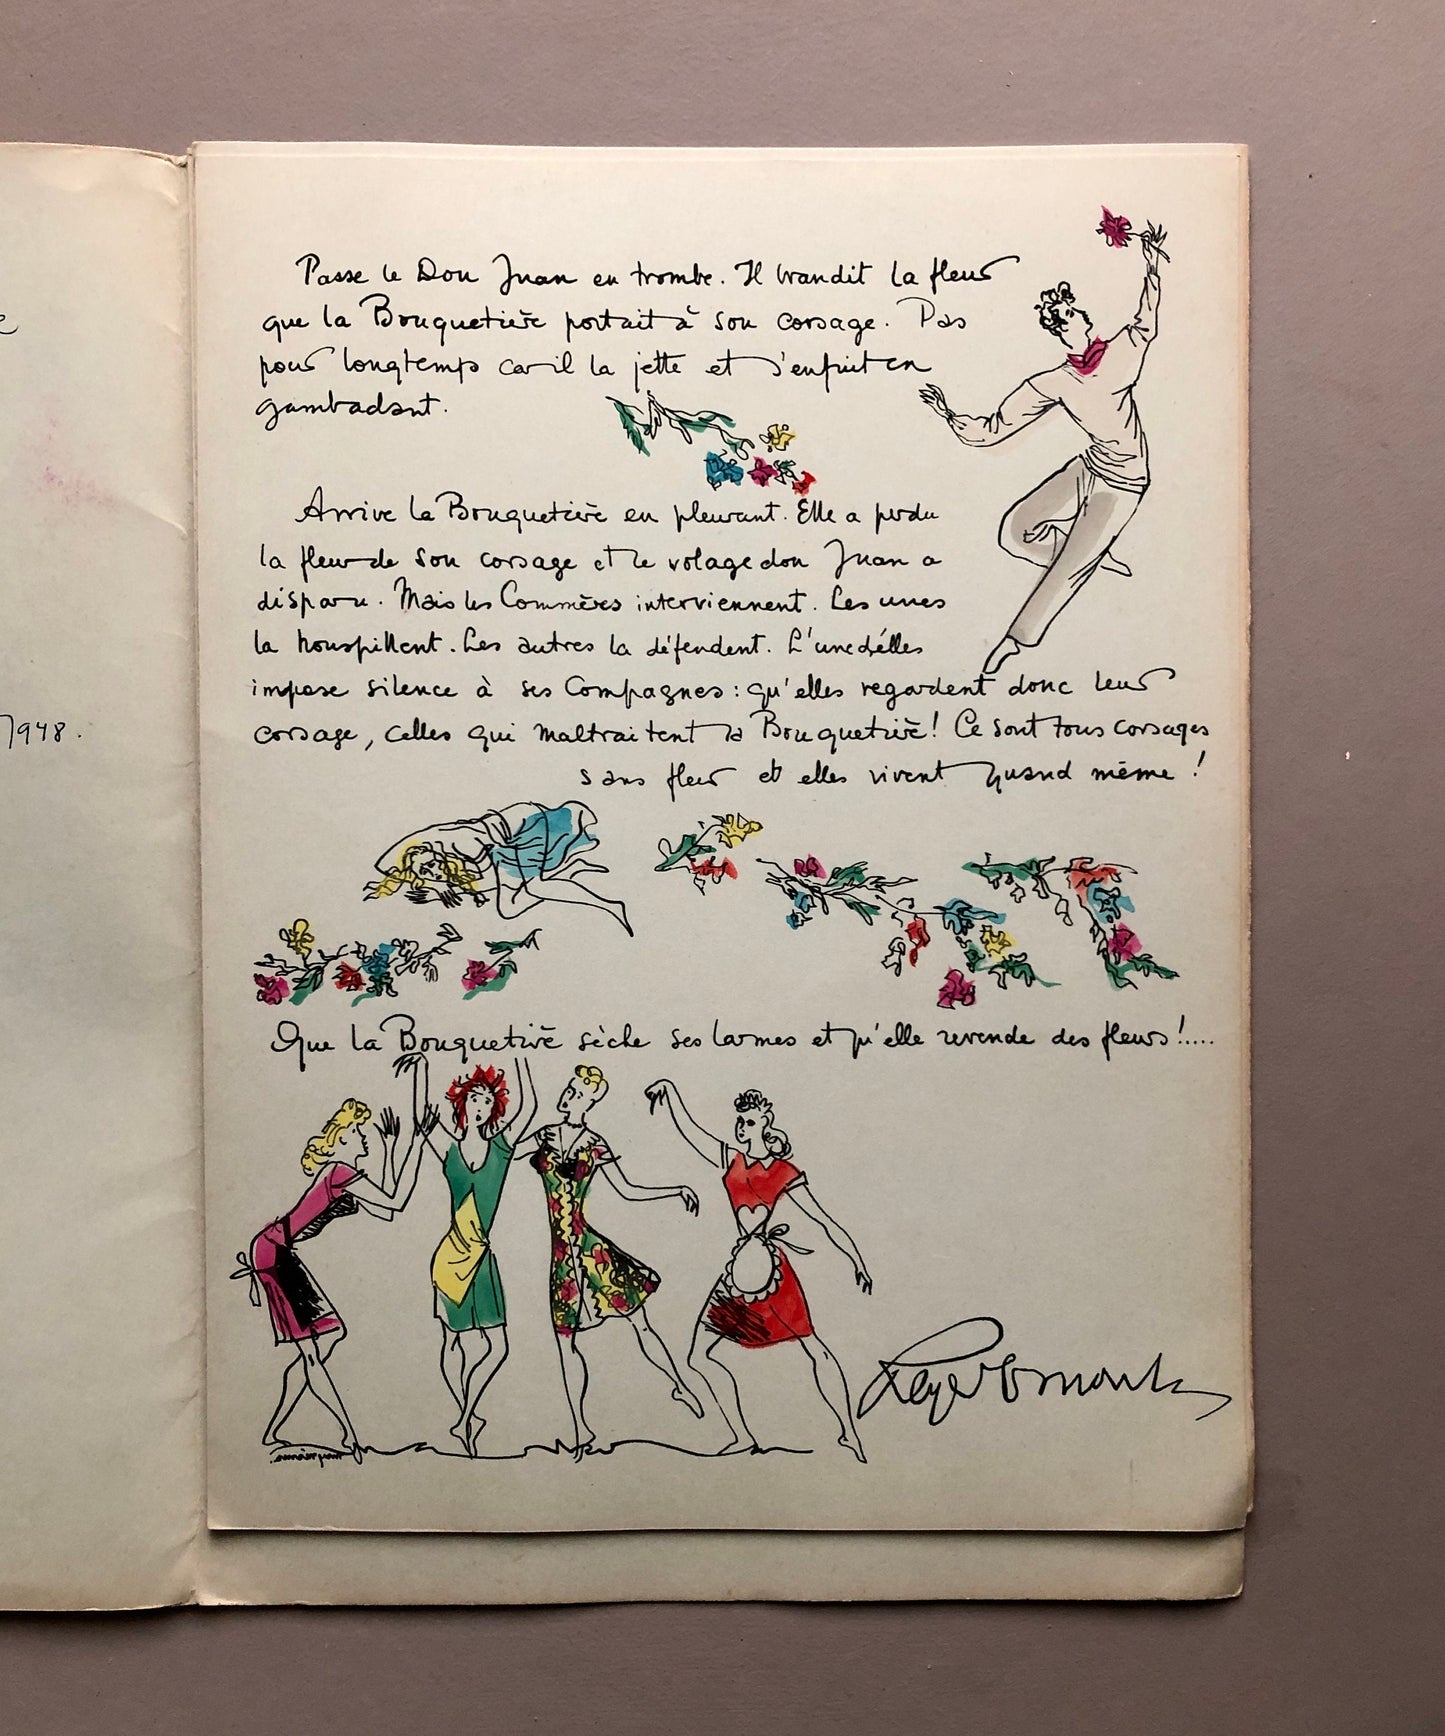 Passe le Don Juan en trombe. Il brandit la fleur
que la Bouquetière portait à son corsage. Pas
pour longtemps car il la jette et s'enfuit en
gambadant.
Arrive la Bouquetière en pleurant. Elle a perdu
la fleur de son corsage et le volage don Juan a
disparu. Mais les Commères interviennent. Les unes
la houspillent. Les autres la défendent. L'une d'elles
impose silence à ses Compagnes : qu'elles regardent donc leur
corsage, celles qui maltraitent la Bouquetière ! Ce sont tous corsages
sans fleur et elles vivent quand même !
Que la Bouquetière sèche ses larmes et qu'elle revende des fleurs !.....
1948.